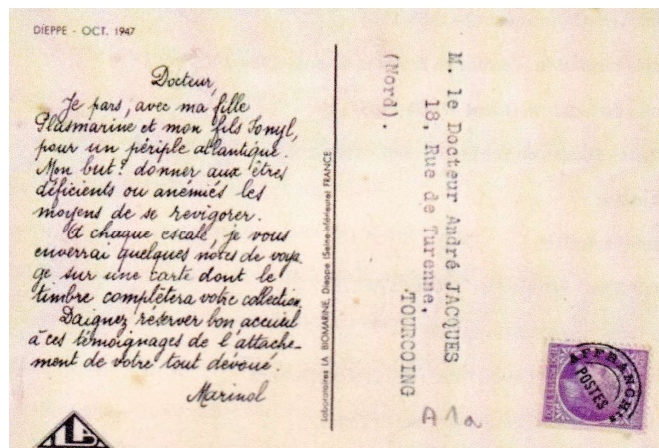 DIEPPE - OCT. 1947
Docteur,
Je pars, avec ma fille
Plasmarine et mon fils Ionyl,
pour un périple atlantique.
Mon but? donner aux êtres
déficients ou anémiés les
moyens de se revigorer.
A chaque escale, je vous
enverrai quelques notes de voya
ge sur une carte dont le
timbre complètera votre collection.
Daignez réserver bon accueil
à ces témoignages de l'attache-
ment de votre tout dévoué.
Marinol
Laboratoires LA BIOMARINE, Dieppe (Seine-Inférieure) FRANCE
M. le Docteur André JACQUES
18, Rue de Turenne,
TOURCOING
(Nord).
A 1a
AFFRANCHts
POSTES